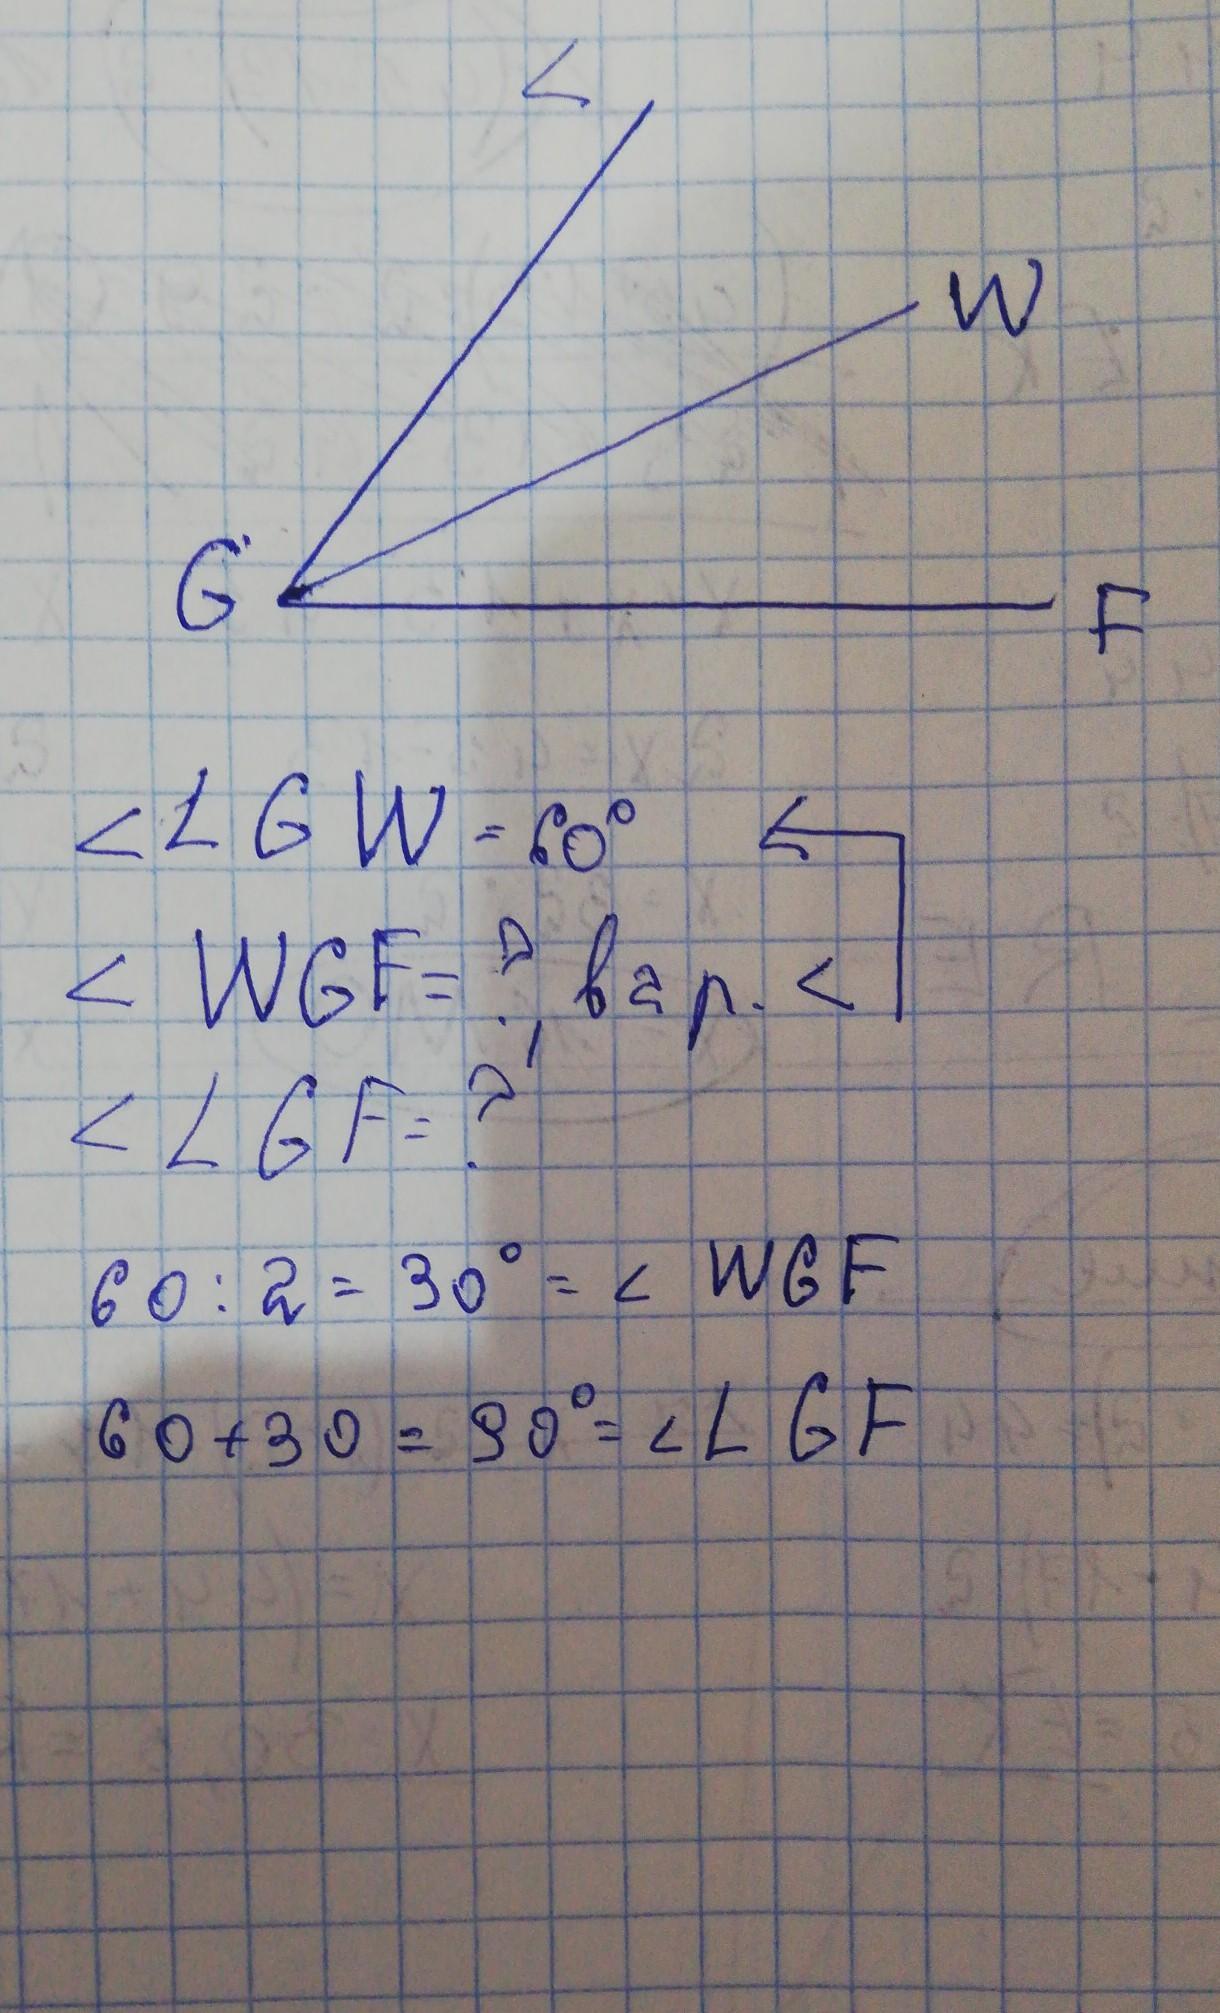 L
W
G
F
< L G W = 60°
< WGF = ?, в 2 р. <
< L G F = ?
60 : 2 = 30° = < WGF
60 + 30 = 90° = < L G F